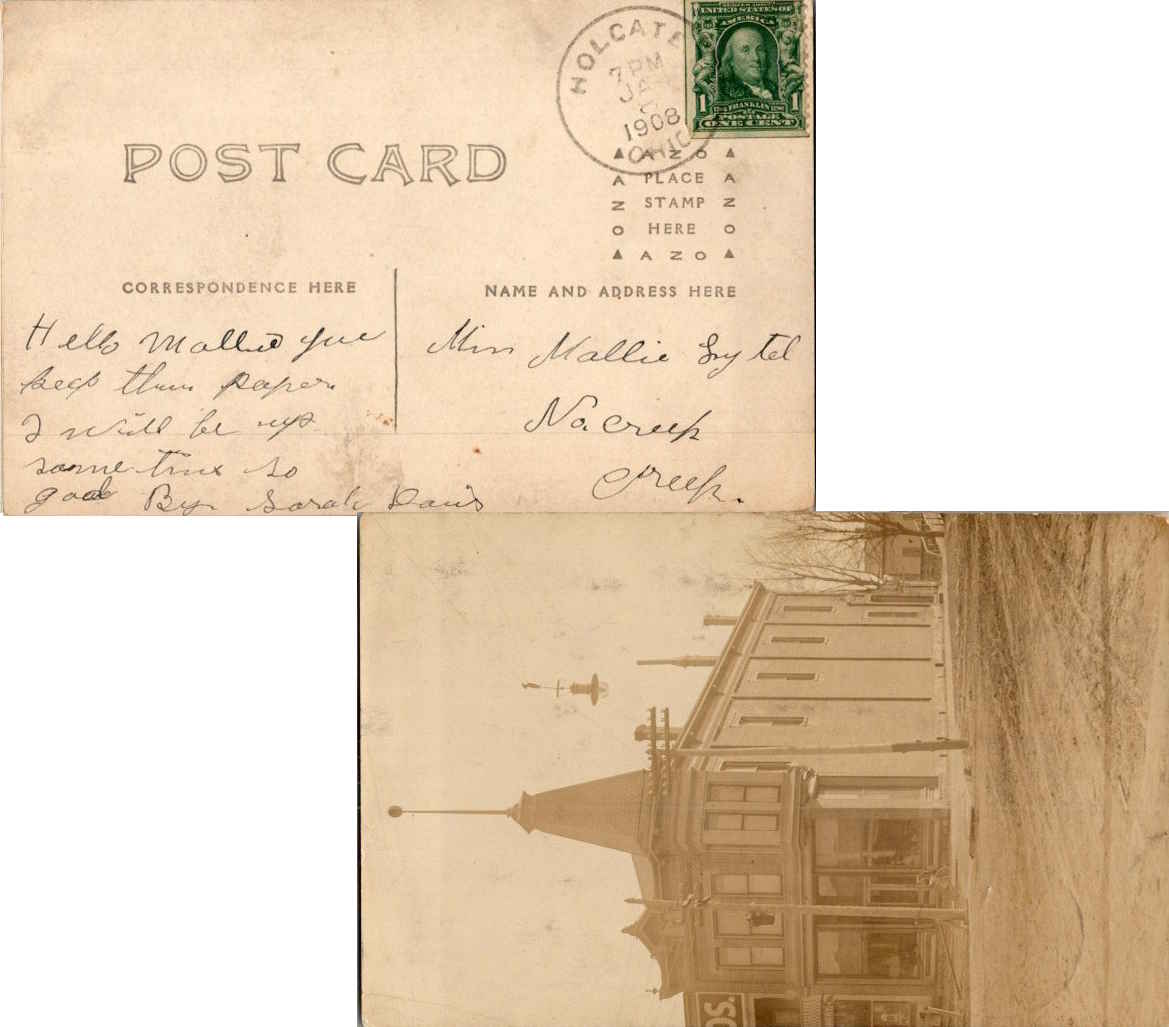 HOLGATE
7 PM
JAN
1908
OHIO
UNITED STATES OF
AMERICA
1 FRANKLIN 1
POSTAGE
ONE CENT
POST CARD
▲ AZO ▲
A PLACE A
N STAMP Z
O HERE O
▲ AZO ▲
CORRESPONDENCE HERE
NAME AND ADDRESS HERE
Hello Mallie you
keep them papers
I will be up
some time so
good By. Sarah Davis
Miss Mallie
No. creek
Creek.
OS.